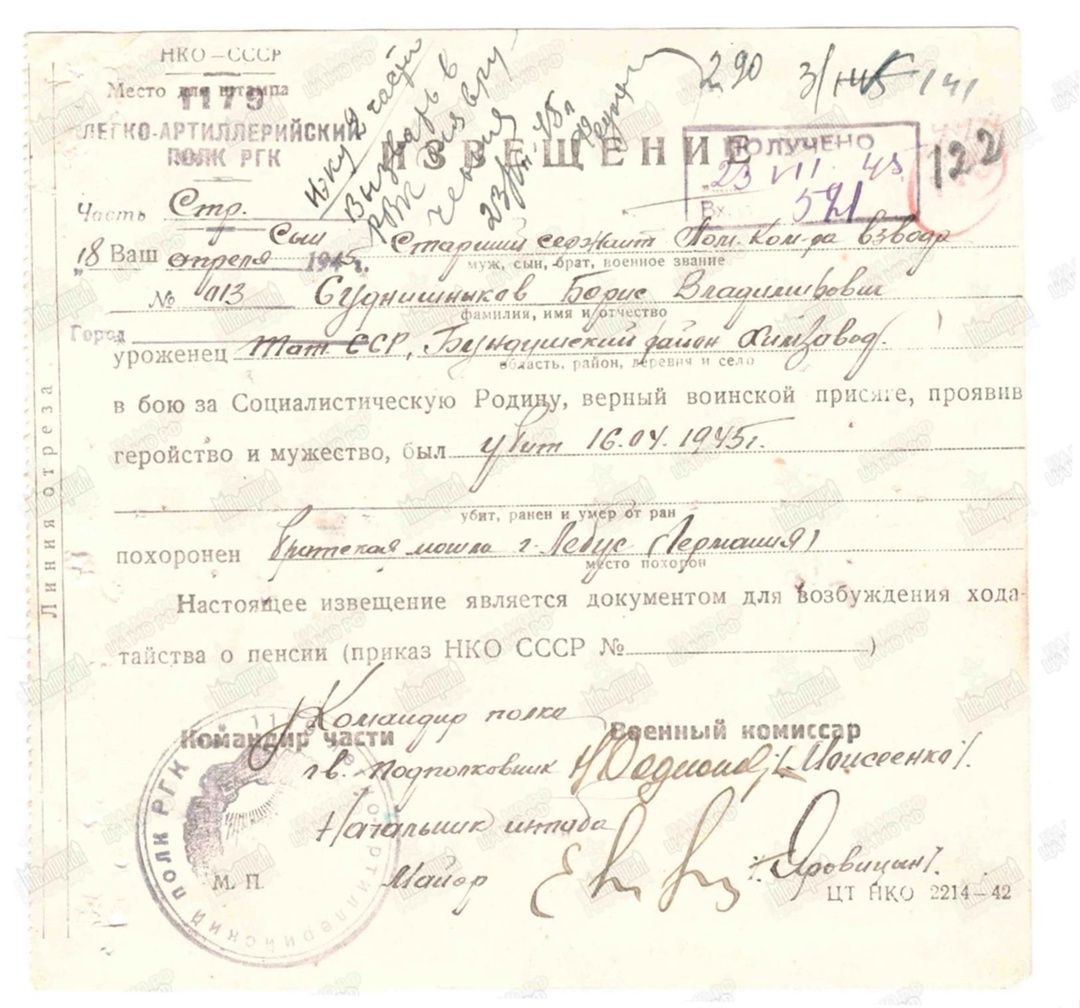 НКО – СССР
Место для штампа
1179
ЛЕГКО-АРТИЛЛЕРИЙСКИЙ
ПОЛК РГК
290
122
ИЗВЕЩЕНИЕ
ПОЛУЧЕНО
23 VII 45
Вх. 521
Часть Стр.
Вызвать в
РВК
23/VII 45 г
"18 апреля 1945 г.
Ваш Сын Старший сержант Пом. Ком-ра взвода
муж, сын, брат, военное звание
№ 0113
Суднишныков Борис Владимирович
фамилия, имя и отчество
Город
уроженец Тат. ССР, Бундюшский район Химзавод.
область, район, деревня и село
в бою за Социалистическую Родину, верный воинской присяге, проявив
геройство и мужество, был убит 16.04.1945г.
убит, ранен и умер от ран
похоронен Братская могила г. Лебус (Германия)
место похорон
Настоящее извещение является документом для возбуждения хода-
тайства о пенсии (приказ НКО СССР № )
Линия отреза
Командир полка
Командир части
Военный комиссар
гв. Подполковник /Моисеенко/.
Начальник штаба
М. П.
Майор /Яровицын/.
ЦТ НКО 2214–42
АРТИЛЛЕРИЙСКИЙ ПОЛК РГК